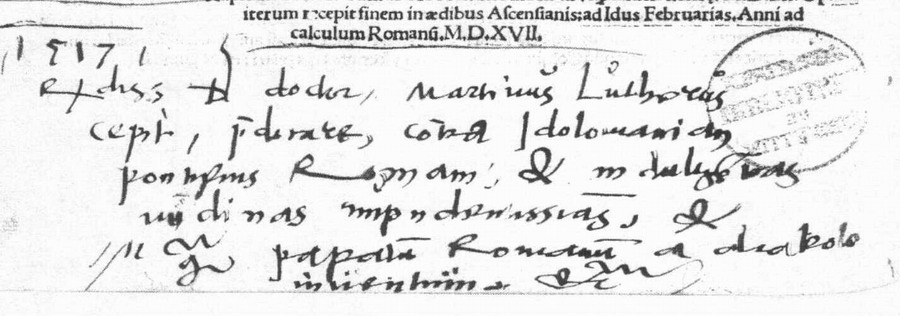 iterum recepit finem in ædibus Ascensianis: ad Idus Februarias. Anni ad
calculum Romanū. M.D.XVII.
1517
doctor, Martinus Lůtherus
cepit, cōtra Idolomaniam
pontificis Romani, & indulgētias
nūdinas impudentissimas, &
papatū Romanū a diabolo
inventum. &c